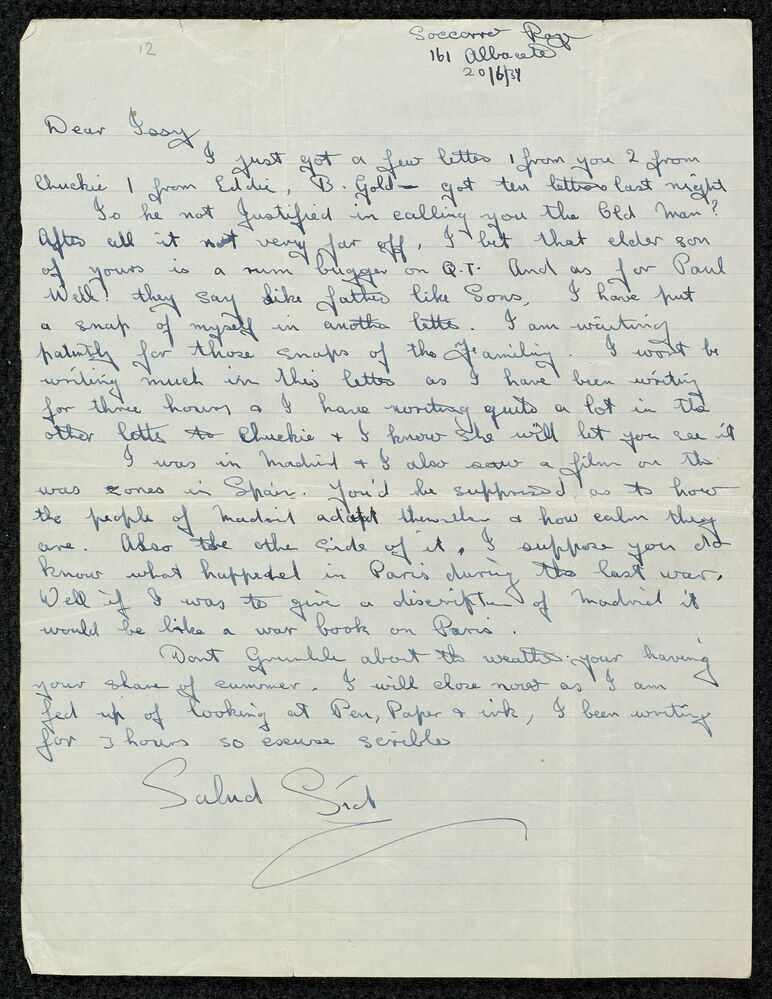 12
Soccorro Roja
161 Albacete
20/6/37
Dear Issy
I just got a few lettes 1 from you 2 from
Chuckie 1 from Eddie, B. Gold — got ten lettes last night
Is he not Justified in calling you the Old Man?
After all it not very far off, I bet that elder son
of yours is a rum bugger on Q.T. And as for Paul
Well! they say like father like Sons, I have put
a snap of myself in anothe lette. I am waiting
patiently for those snaps of the Familiy. I wont be
writing much in this letter as I have been writing
for three hours & I have writing quite a lot in the
other lette to Chuckie & I know she will let you see it
I was in Madrid & I also saw a film on the
was zones in Spain. You'd be supprised as to how
the people of Madrid adapt themselves & how calm they
are. Also the other side of it, I suppose you do
know what happened in Paris during the last war.
Well if I was to give a discription of Madrid it
would be like a war book on Paris.
Dont Grumble about the weather your having
your share of summer. I will close now as I am
fed up of looking at Pen, Paper & ink, I been writing
for 3 hours so excuse scribble
Salud Sid